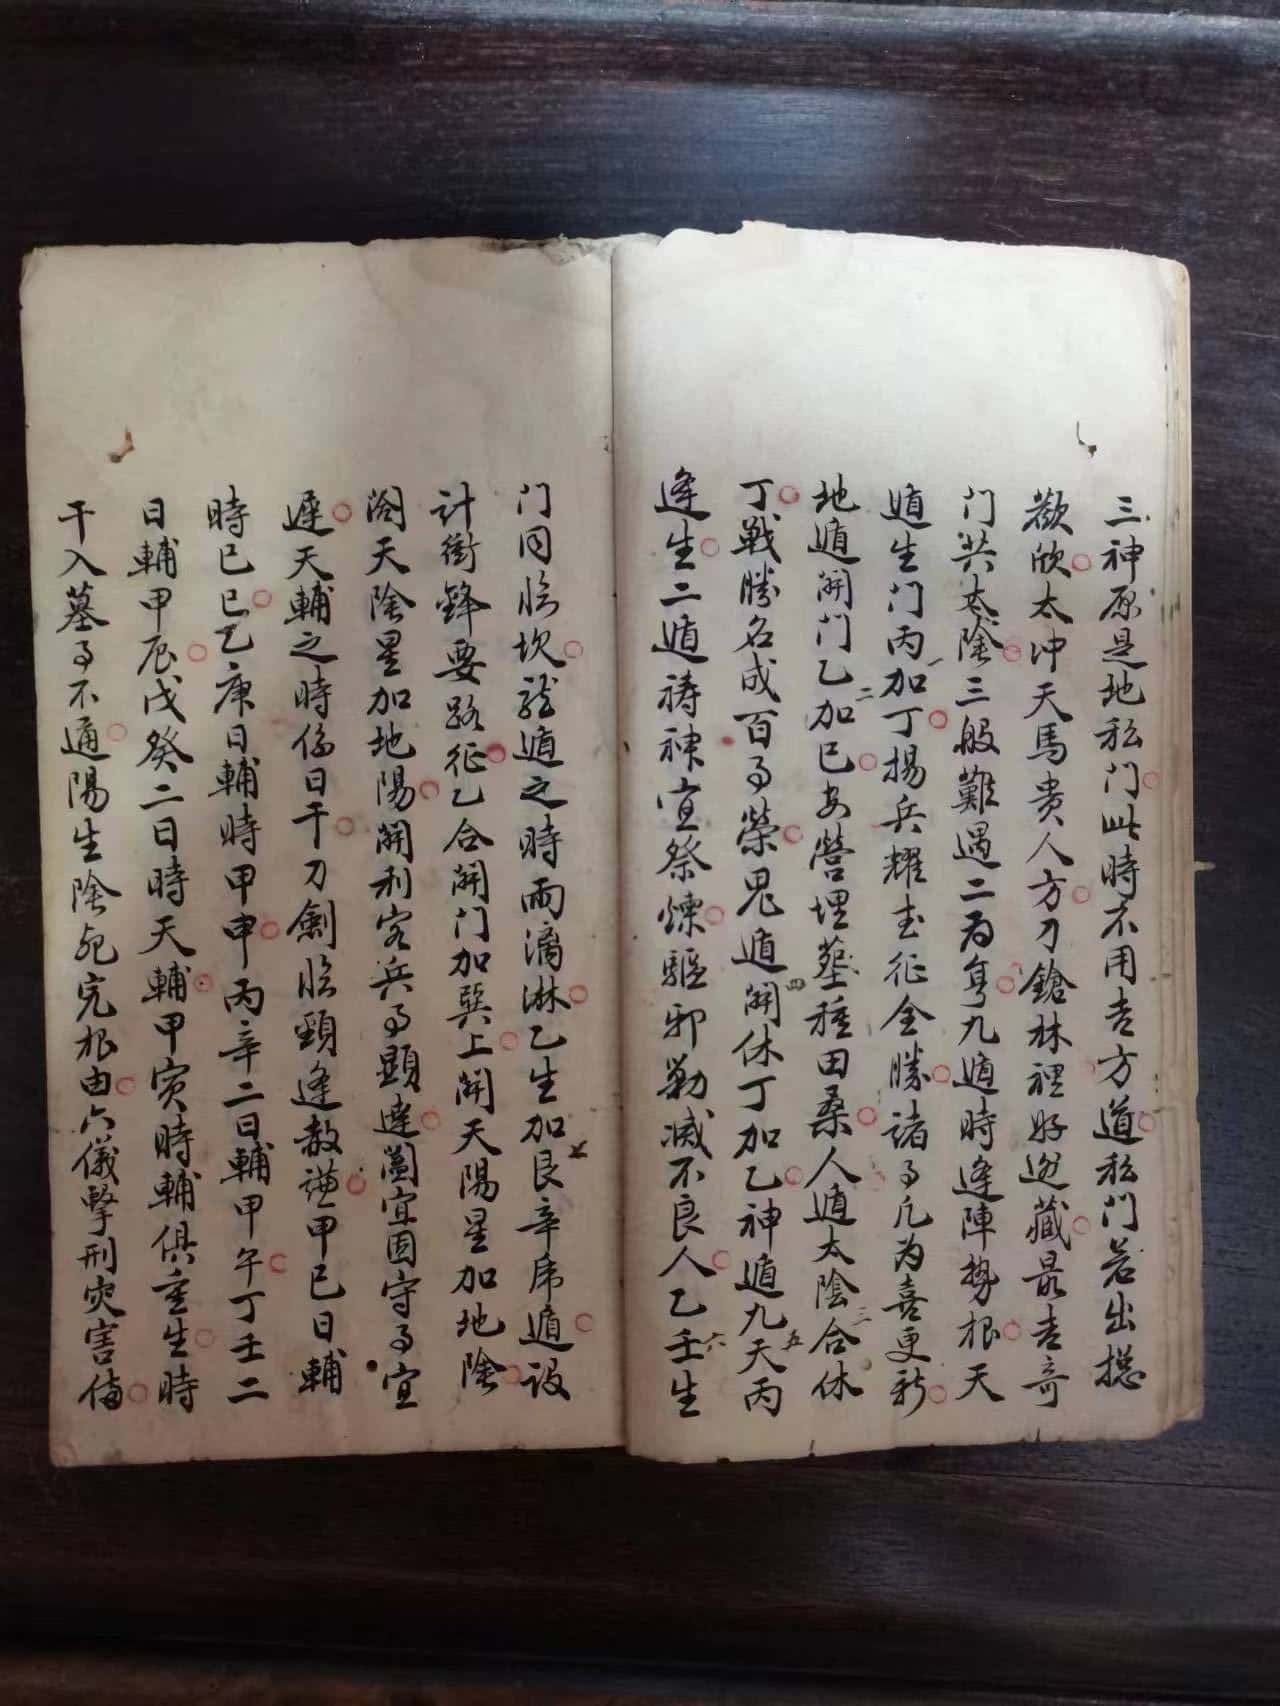 三神原是地私門此時不用吉方道私門若出揔
歡欣太冲天馬貴人方刀鎗林裡好逃藏最吉奇
門共太陰三般難遇二為真九遁時逢陣勢根天
遁生門丙加丁揚兵耀武征全勝諸事凡为喜更新
地遁開門乙加巳安營埋墓種田桑人遁太陰合休
丁戰勝名成百事榮鬼遁開休丁加乙神遁九天丙
逢生二遁祷神宜祭煉驅邪勦滅不良人乙壬生
門同临坎龍遁之時雨滴淋乙生加艮辛虎遁设
計衝鋒要路征乙合開門加巽上開天陽星加地陰
闭天陰星加地陽開利客兵事顯達闔宜固守事宜
遲天輔之時係日干刀劍临頸逢赦謹甲巳日輔
時巳巳乙庚日輔時甲申丙辛二日輔甲午丁壬二
日輔甲辰戊癸二日時天輔甲寅時輔俱重生時
干入墓事不通陽生陰死究根由六儀擊刑灾害偹
一
二
三
四
五
六
七